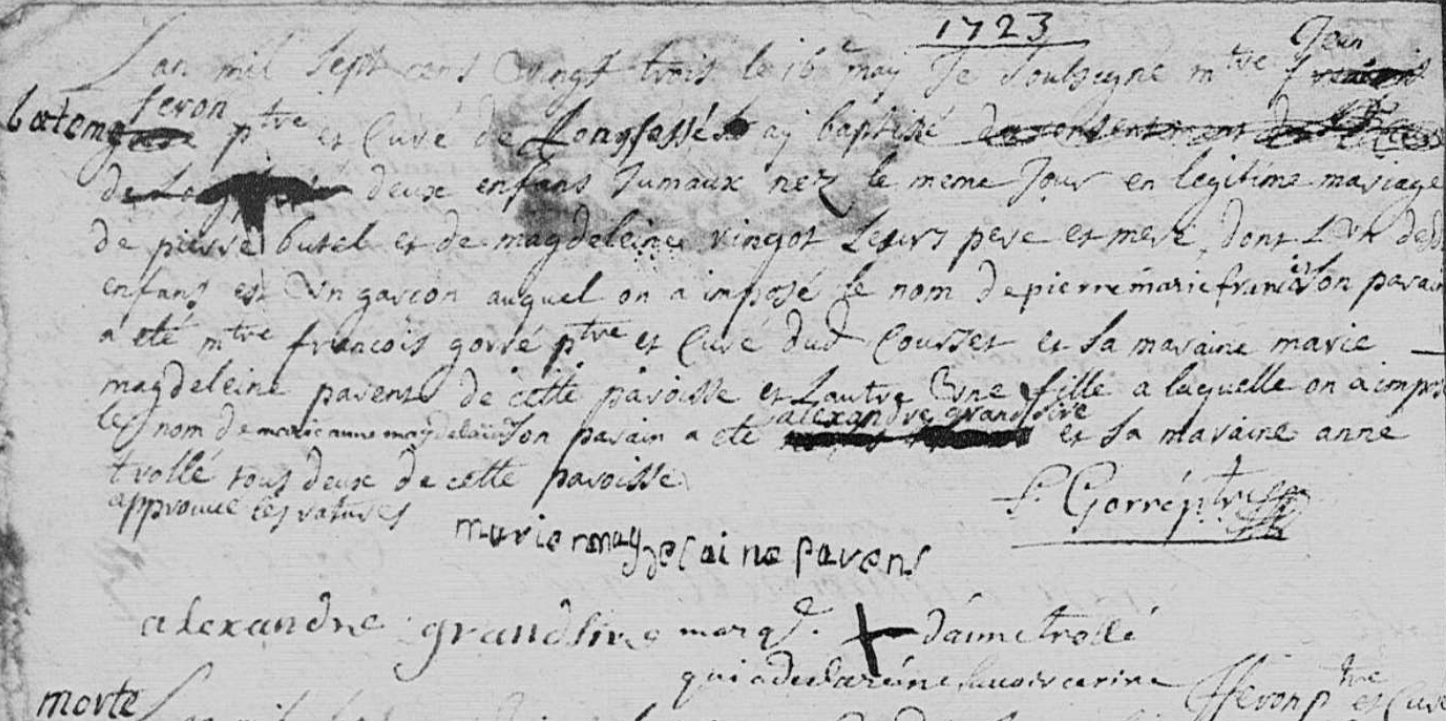 1723
Lan mil sept cens Vingt trois le 16 may Je Soubsigne mtre Jean
batem feron ptre et Curé de Longfossé ay baptisé
deux enfans Jumaux nez le meme Jour en legitime mariage
de pierre butel et de magdeleine vingot Leurs pere et mere dont Lun desd
enfans est Vn garcon auquel on a imposé le nom de pierre marie francois Son parain
a eté mtre francois gorré ptre et Curé dud Courset et Sa maraine marie
magdeleine parent de cette paroisse et Lautre Vne fille a laquelle on a impose
le nom de marie anne magdelaine Son parain a eté alexandre grandsire et Sa maraine anne
trollé tous deux de cette paroisse
approuve les ratures
f. Gorré ptre
marie magdelaine parens
alexandre grandsire marq. + danne trollé
qui a declaré ne scavoir ecrire
J feron ptre et Curé
morte
Lan mil